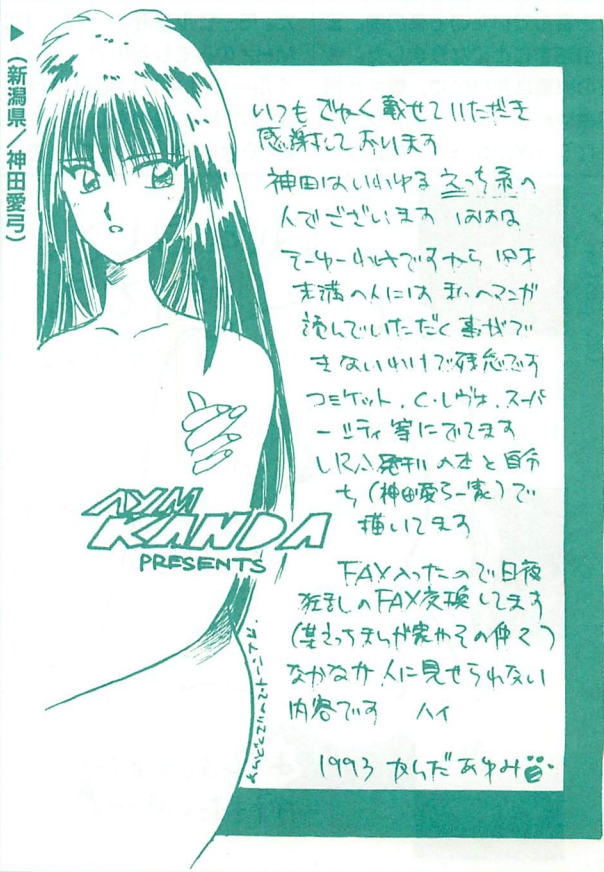 ▶(新潟県/神田愛弓)
いつも でかく 載せていただき
感謝しております
神田はいわゆる えっち系の
人でございます ははは
そーゆーわけですから 18才
未満の人には 私のマンガ
読んでいただく事がで
きないわけで残念です
コミケット、C・レヴォ、スーパ
ーシティ 等にでてます
発刊の本と自分
ち(神田愛ら一家)で
描いてます
FAX入ったので日夜
狂乱のFAX交換してます
(某えっちまんが家やその仲々)
なかなか 人に見せられない
内容です ハイ
1993 かんだ あゆみ
AYM
KANDA
PRESENTS